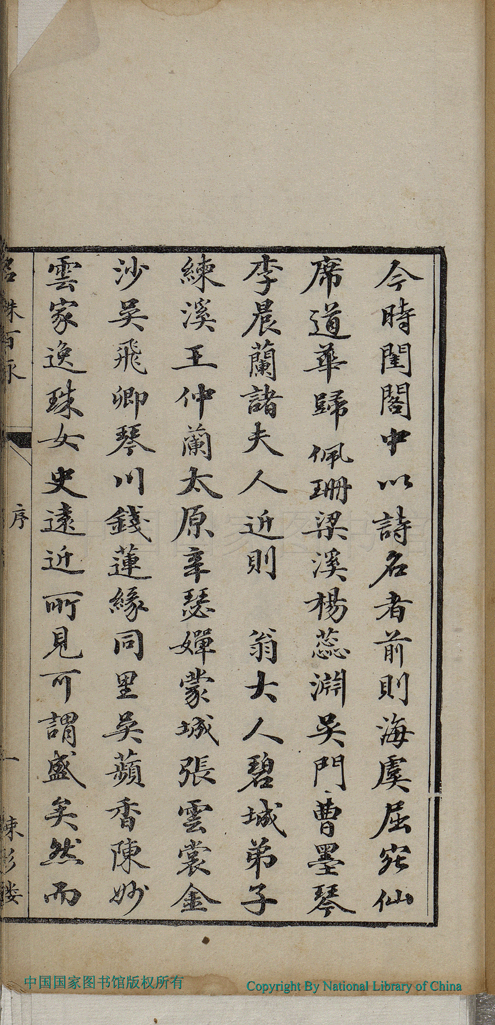 今時閨閣中以詩名者前則海虞屈宛仙
席道華歸佩珊梁溪楊蕊淵吳門曹墨琴
李晨蘭諸夫人近則　翁大人碧城弟子
練溪王仲蘭太原辛瑟嬋蒙城張雲裳金
沙吳飛卿琴川錢蓮緣同里吳蘋香陳妙
雲家逸珠女史遠近所見可謂盛矣然而
百詠
序
一
中国国家图书馆版权所有
Copyright By National Library of China